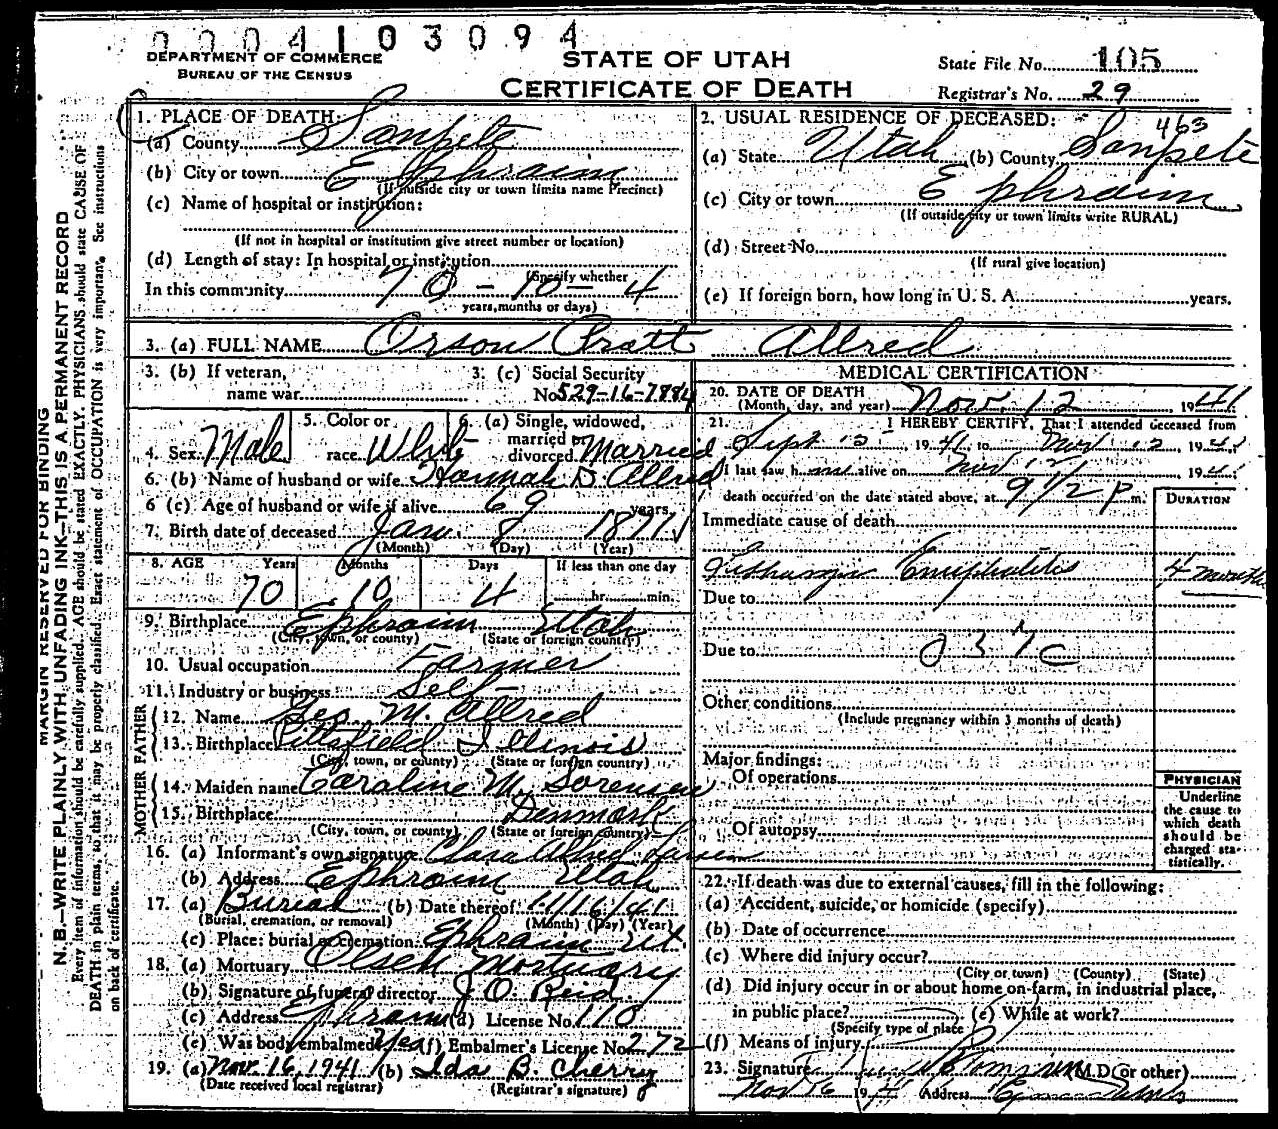 0004103094
DEPARTMENT OF COMMERCE
BUREAU OF THE CENSUS
STATE OF UTAH
CERTIFICATE OF DEATH
State File No. 105
Registrar's No. 29
MARGIN RESERVED FOR BINDING
N. B.—WRITE PLAINLY WITH UNFADING INK—THIS IS A PERMANENT RECORD
Every item of information should be carefully supplied. AGE should be stated EXACTLY. PHYSICIANS should state CAUSE OF
DEATH in plain terms, so that it may be properly classified. Exact statement of OCCUPATION is very important. See instructions
on back of certificate.
1. PLACE OF DEATH:
(a) County Sanpete
(b) City or town Ephraim
(If outside city or town limits name Precinct)
(c) Name of hospital or institution:
(If not in hospital or institution give street number or location)
(d) Length of stay: In hospital or institution
(Specify whether
In this community 70 - 10 - 4
years, months or days)
2. USUAL RESIDENCE OF DECEASED:
463
(a) State Utah (b) County Sanpete
(c) City or town Ephraim
(If outside city or town limits write RURAL)
(d) Street No.
(If rural give location)
(e) If foreign born, how long in U. S. A. years.
3. (a) FULL NAME Orson Pratt Allred
3. (b) If veteran,
name war
3. (c) Social Security
No. 529-16-7884
4. Sex Male
5. Color or
race White
6. (a) Single, widowed,
married or
divorced Married
6. (b) Name of husband or wife Hannah D. Allred
6 (c) Age of husband or wife if alive 69 years
7. Birth date of deceased Jan. 8 1871
(Month) (Day) (Year)
8. AGE Years Months Days If less than one day
70 10 4 hr. min.
9. Birthplace Ephraim Utah
(City, town, or county) (State or foreign country)
10. Usual occupation Farmer
11. Industry or business Self
FATHER
12. Name Geo. M. Allred
13. Birthplace Pittsfield Illinois
(City, town, or county) (State or foreign country)
MOTHER
14. Maiden name Caroline M. Sorensen
15. Birthplace Denmark
(City, town, or county) (State or foreign country)
16. (a) Informant's own signature Clara Allred Larsen
(b) Address Ephraim Utah
17. (a) Burial (b) Date thereof 11/16/41
(Burial, cremation, or removal) (Month) (Day) (Year)
(c) Place: burial or cremation Ephraim Ut.
18. (a) Mortuary Olsen Mortuary
(b) Signature of funeral director J. O. Reid
(c) Address Ephraim (d) License No. 110
(e) Was body embalmed? Yes (f) Embalmer's License No. 272
19. (a) Nov. 16, 1941 (b) Ida B. Cherry
(Date received local registrar) (Registrar's signature)
MEDICAL CERTIFICATION
20. DATE OF DEATH
(Month, day, and year) Nov. 12, 1941
21. I HEREBY CERTIFY, That I attended deceased from
Sept 12 1941 to Nov 12 1941
I last saw him alive on Nov 12 194
death occurred on the date stated above, at 9 1/2 p m.
DURATION
Immediate cause of death
Encephalitis 4 months
Due to
Due to 037c
Other conditions
(Include pregnancy within 3 months of death)
Major findings:
Of operations
Of autopsy
PHYSICIAN
Underline
the cause to
which death
should be
charged sta-
tistically.
22. If death was due to external causes, fill in the following:
(a) Accident, suicide, or homicide (specify)
(b) Date of occurrence
(c) Where did injury occur?
(City or town) (County) (State)
(d) Did injury occur in or about home on farm, in industrial place,
in public place? (e) While at work?
(Specify type of place
(f) Means of injury
23. Signature (M. D. or other)
Nov 16 1941 Address